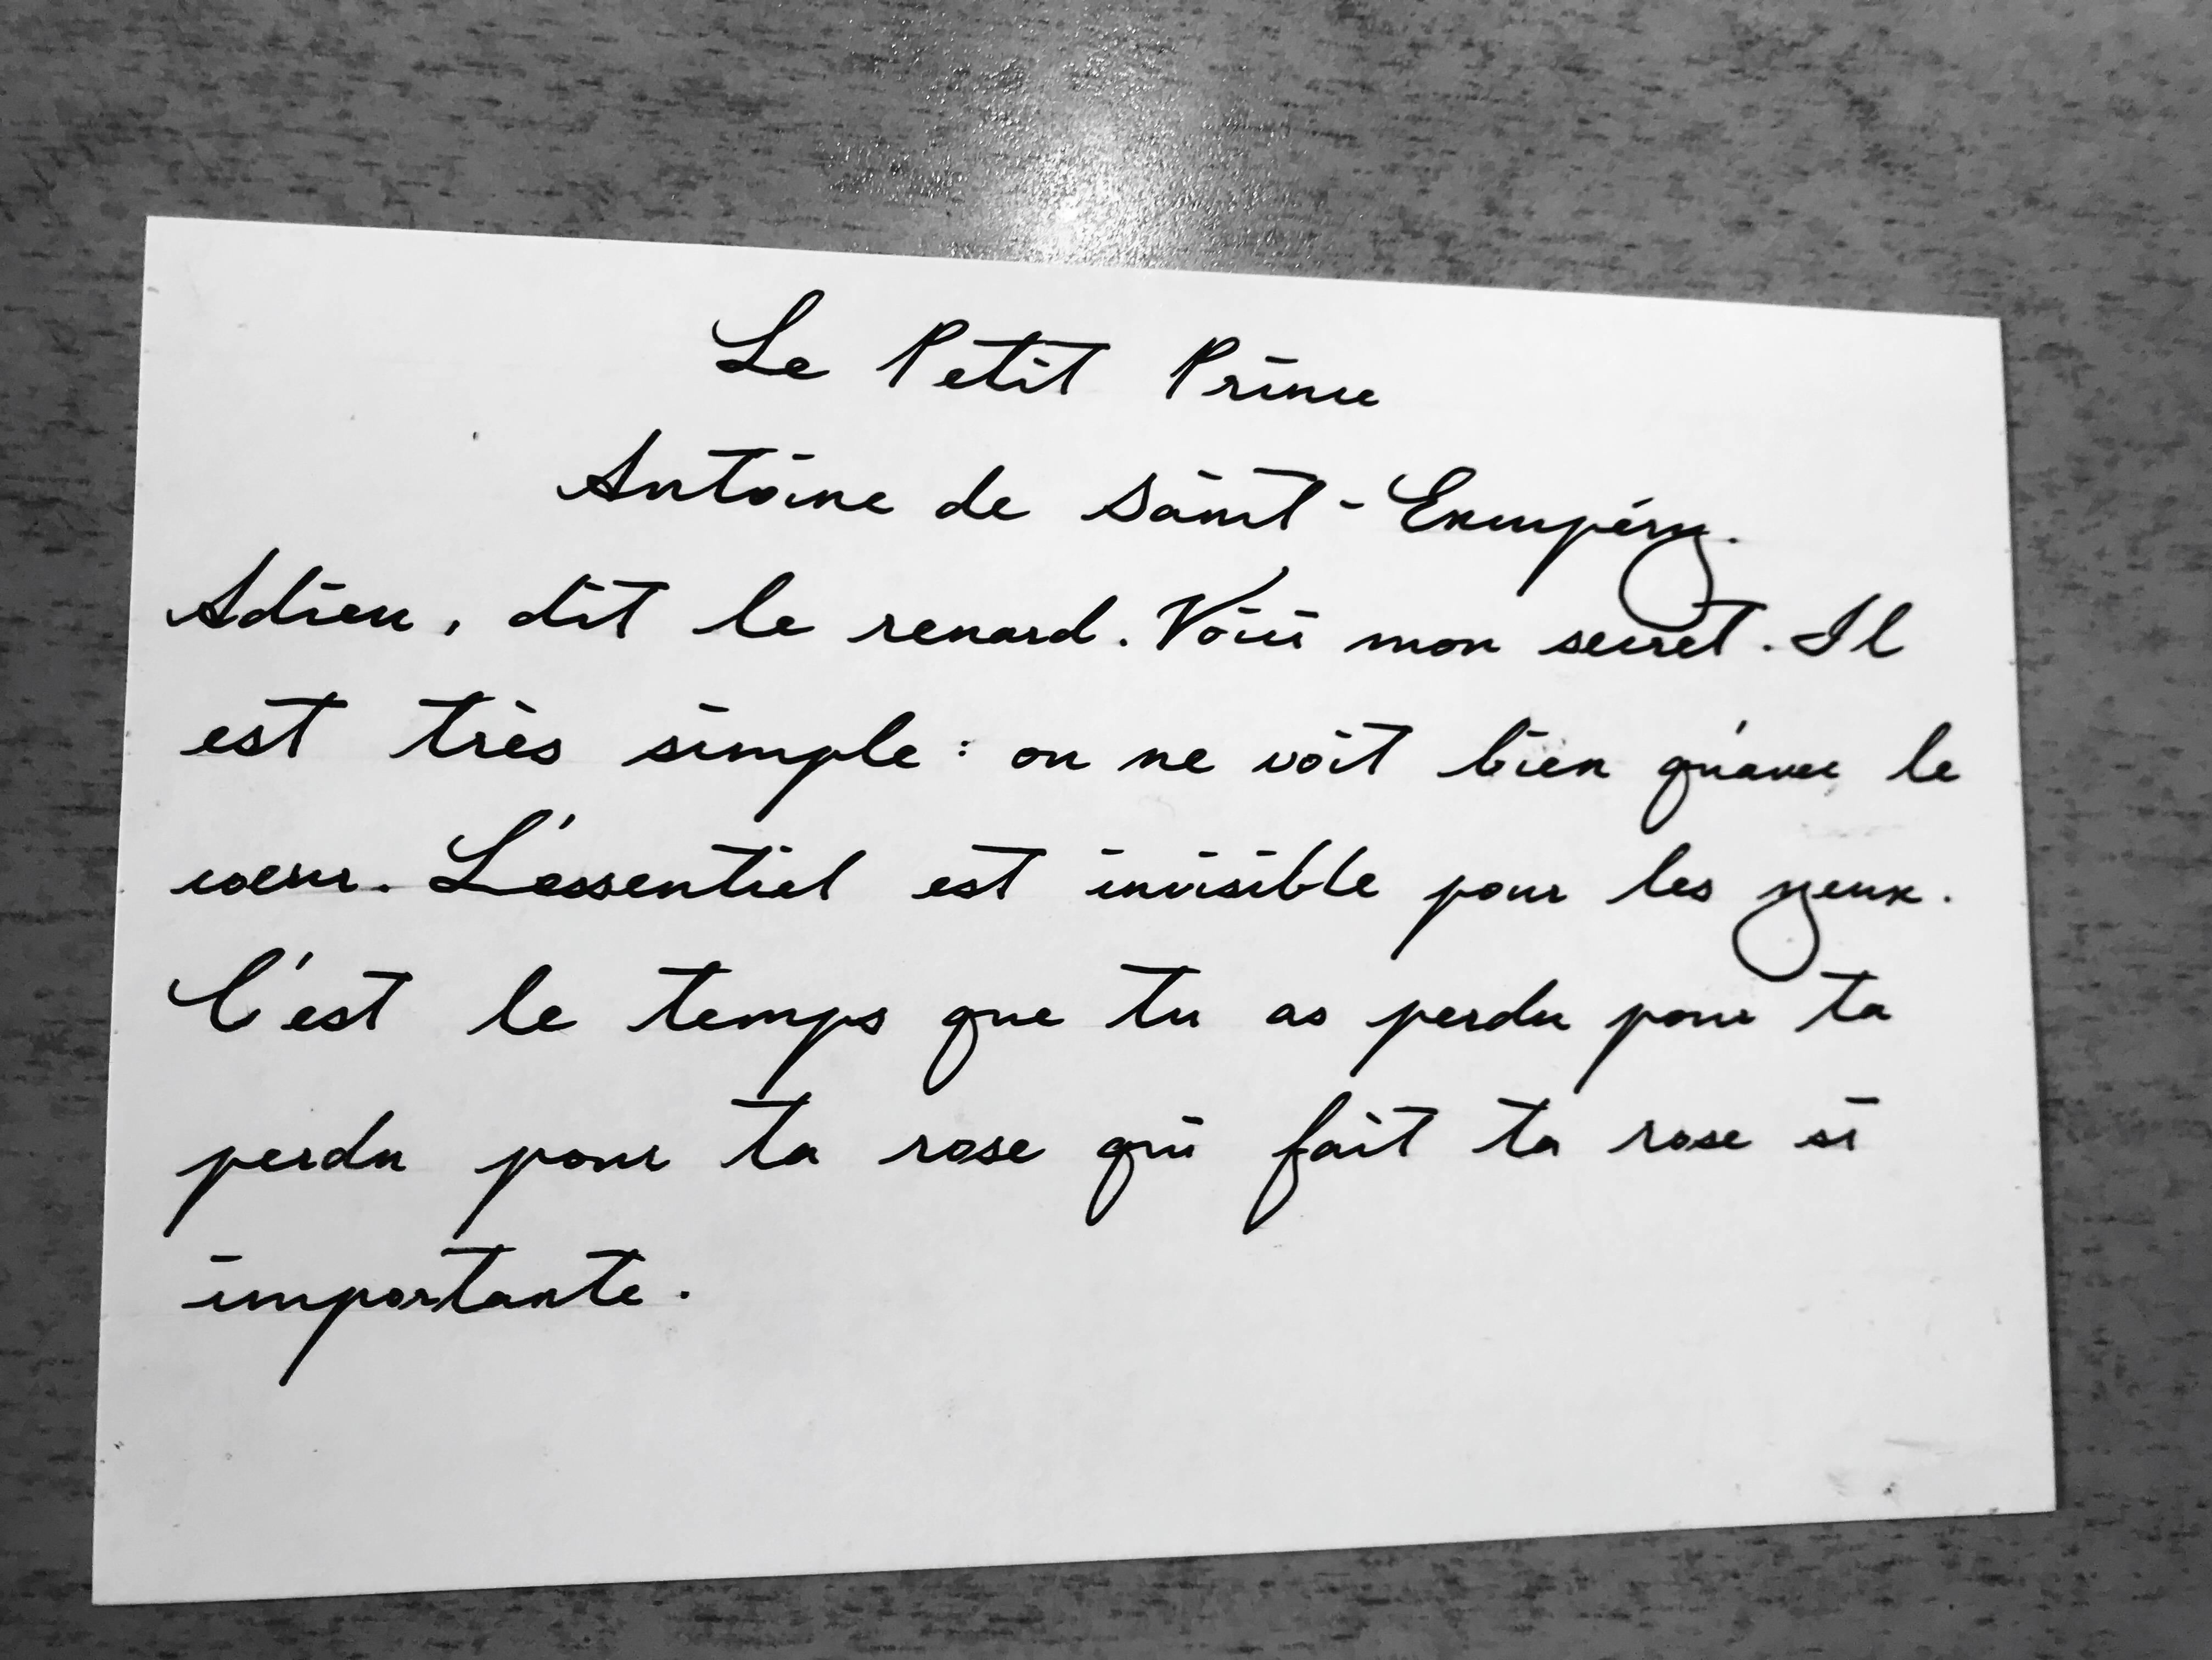 Le Petit Prince
Antoine de Saint-Exupéry.
Adieu, dit le renard. Voici mon secret. Il
est très simple : on ne voit bien qu'avec le
coeur. L'essentiel est invisible pour les yeux.
C'est le temps que tu as perdu pour ta
perdu pour ta rose qui fait ta rose si
importante.